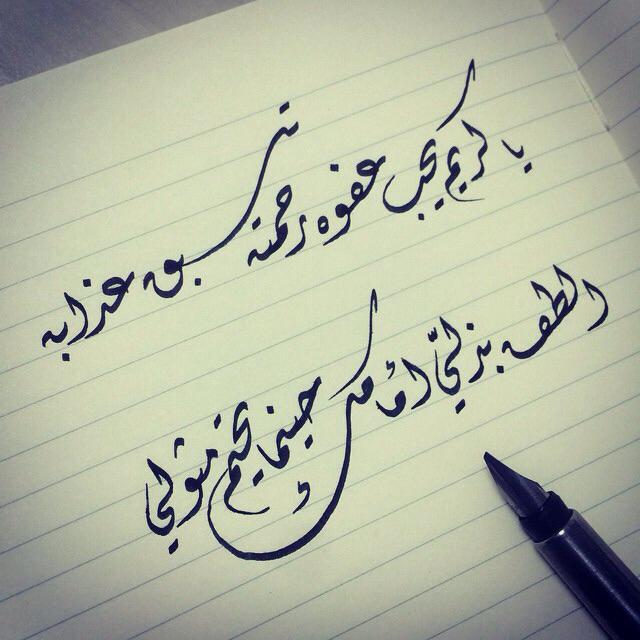 يا كريم يحب عفوه رحمته تسبق عذابه
الطف بذلتي أمامك حينما يحين مثولي